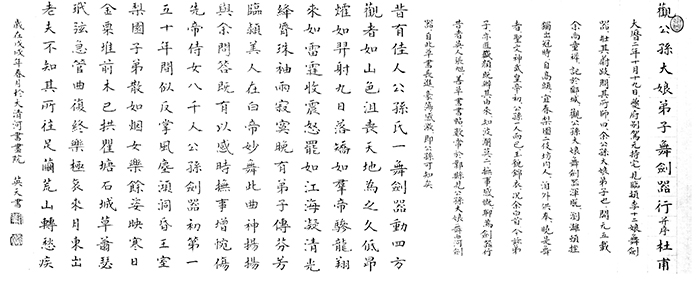 觀公孫大娘弟子舞劍器行并序 杜甫
大曆二年十月十九日夔府別駕元持宅見臨潁李十二娘舞劍
器壯其蔚跂問其所師曰余公孫大娘弟子也開元五載
余尚童稚記於郾城觀公孫大娘舞劍器渾脫瀏灕頓挫
獨出冠時自高頭宜春梨園二伎坊內人洎外供奉曉是舞
者聖文神武皇帝初公孫一人而已玉貌錦衣況余白首今茲弟
子亦匪盛顏既辨其由來知波瀾莫二撫事感慨聊為劍器行
昔者吳人張旭善草書書帖數常於鄴縣見公孫大娘舞西河劍
器自此草書長進豪蕩感激即公孫可知矣
昔有佳人公孫氏一舞劍器動四方
觀者如山色沮喪天地為之久低昂
㸌如羿射九日落矯如羣帝驂龍翔
來如雷霆收震怒罷如江海凝清光
絳脣珠袖兩寂寞晚有弟子傳芬芳
臨潁美人在白帝妙舞此曲神揚揚
與余問答既有以感時撫事增惋傷
先帝侍女八千人公孫劍器初第一
五十年間似反掌風塵澒洞昏王室
梨園子弟散如煙女樂餘姿映寒日
金粟堆前木已拱瞿塘石城草蕭瑟
玳弦急管曲復終樂極哀來月東出
老夫不知其所往足繭荒山轉愁疾
歲在戊戌年春月於天清河書畫院 英天書